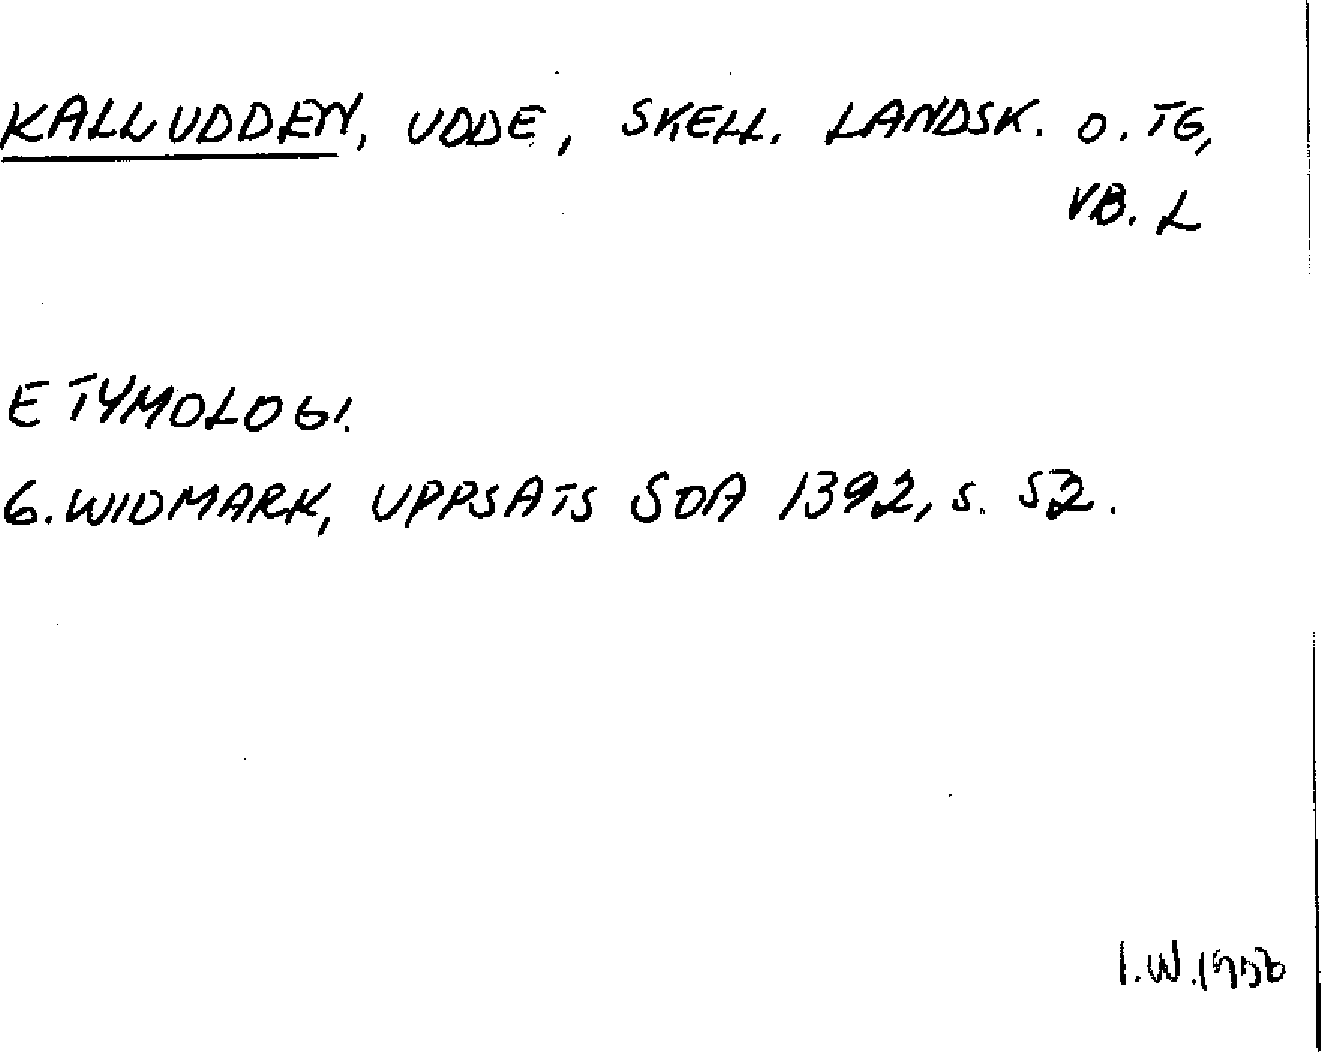 KALLUDDEN, UDDE, SKELL. LANDSK. O. TG,
VB. L
ETYMOLOGI.
G. WIDMARK, UPPSATS SOA 1392, S. 52.
I.W. 1956